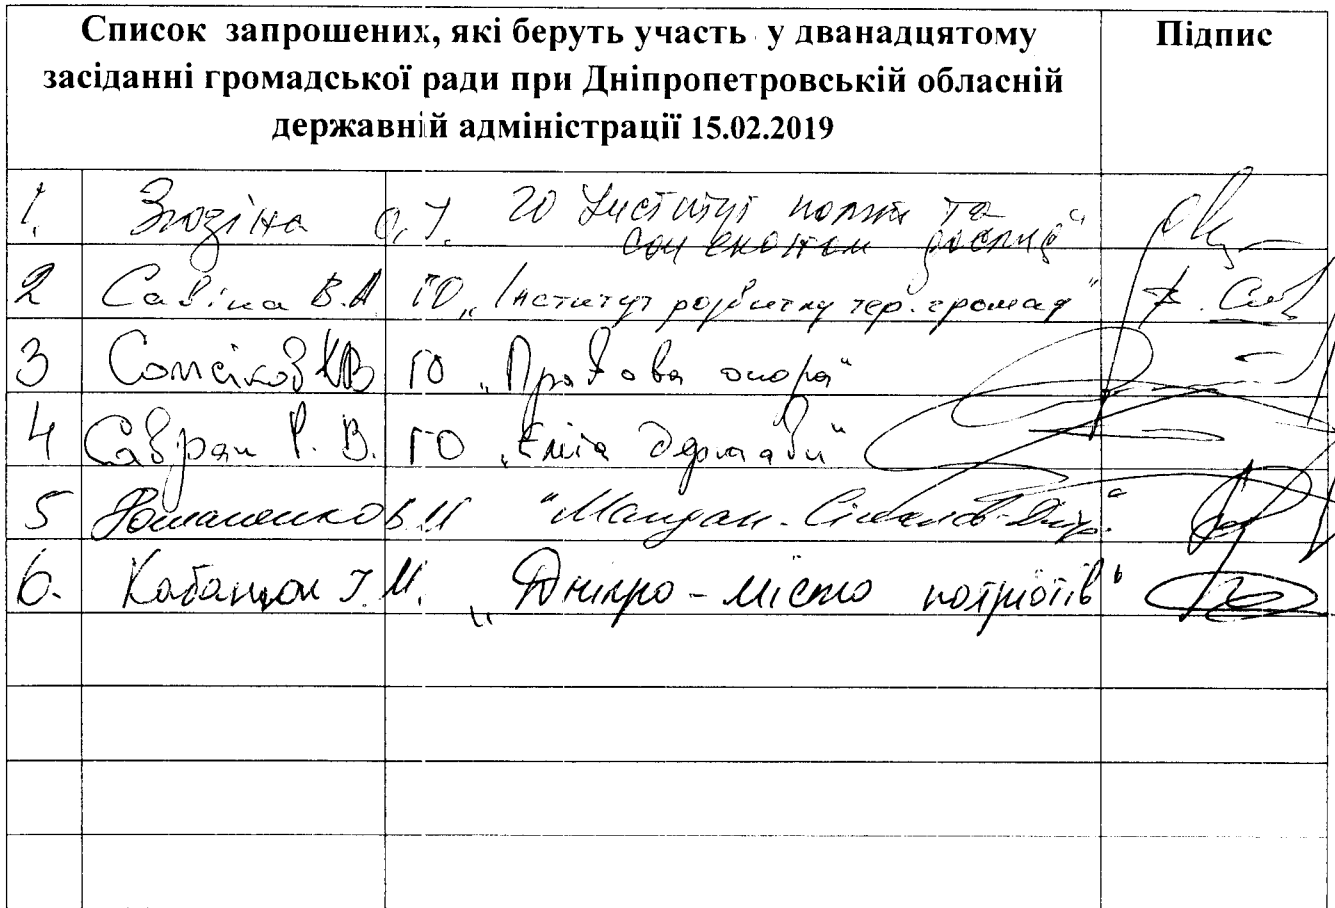 Список запрошених, які беруть участь у дванадцятому
засіданні громадської ради при Дніпропетровській обласній
державній адміністрації 15.02.2019
Підпис
1. О.І. ГО Інститут та
соц економ дослід"
2 Савіна В.А ГО „Інститут розвитку тер. громад"
3 КВ ГО „Правова опора"
4 Савран Р. В. ГО „Еліта держави"
5 Романенко В.М "Майдан-Січеслав-Дніпр."
6. І.М. „Дніпро - місто патріотів"